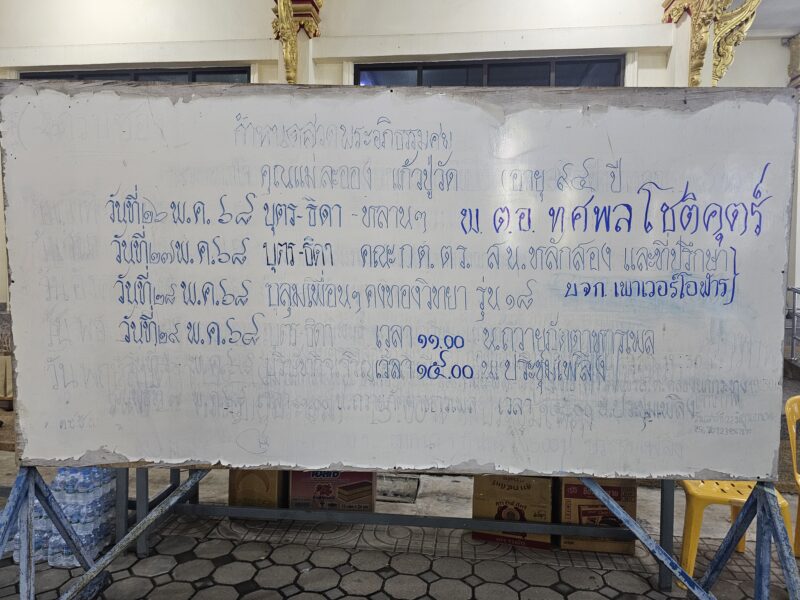 กำหนดสวดพระอภิธรรมศพ
คุณแม่ละออง แก้วปู่วัด (อายุ ๙๔ ปี
วันที่๒๖ พ.ค. ๖๘ บุตร-ธิดา -หลานๆ พ.ต.อ. ทศพลโชติคุตร์
วันที่๒๗พ.ค.๖๘ บุตร-ธิดา คณะกต.ตร. สน.หลักสอง และที่ปรึกษา)
วันที่๒๘ พ.ค.๖๘ กลุ่มเพื่อนๆคงทองวิทยา รุ่น๑๘ บจก.เพาเวอร์โอฟาร์)
วันที่๒๙ พ.ค.๖๘ บุตร-ธิดา เวลา ๑๑.๐๐ น.ถวายภัตตาหารเพล
เวลา ๑๕.๐๐ น.ประชุมเพลิง